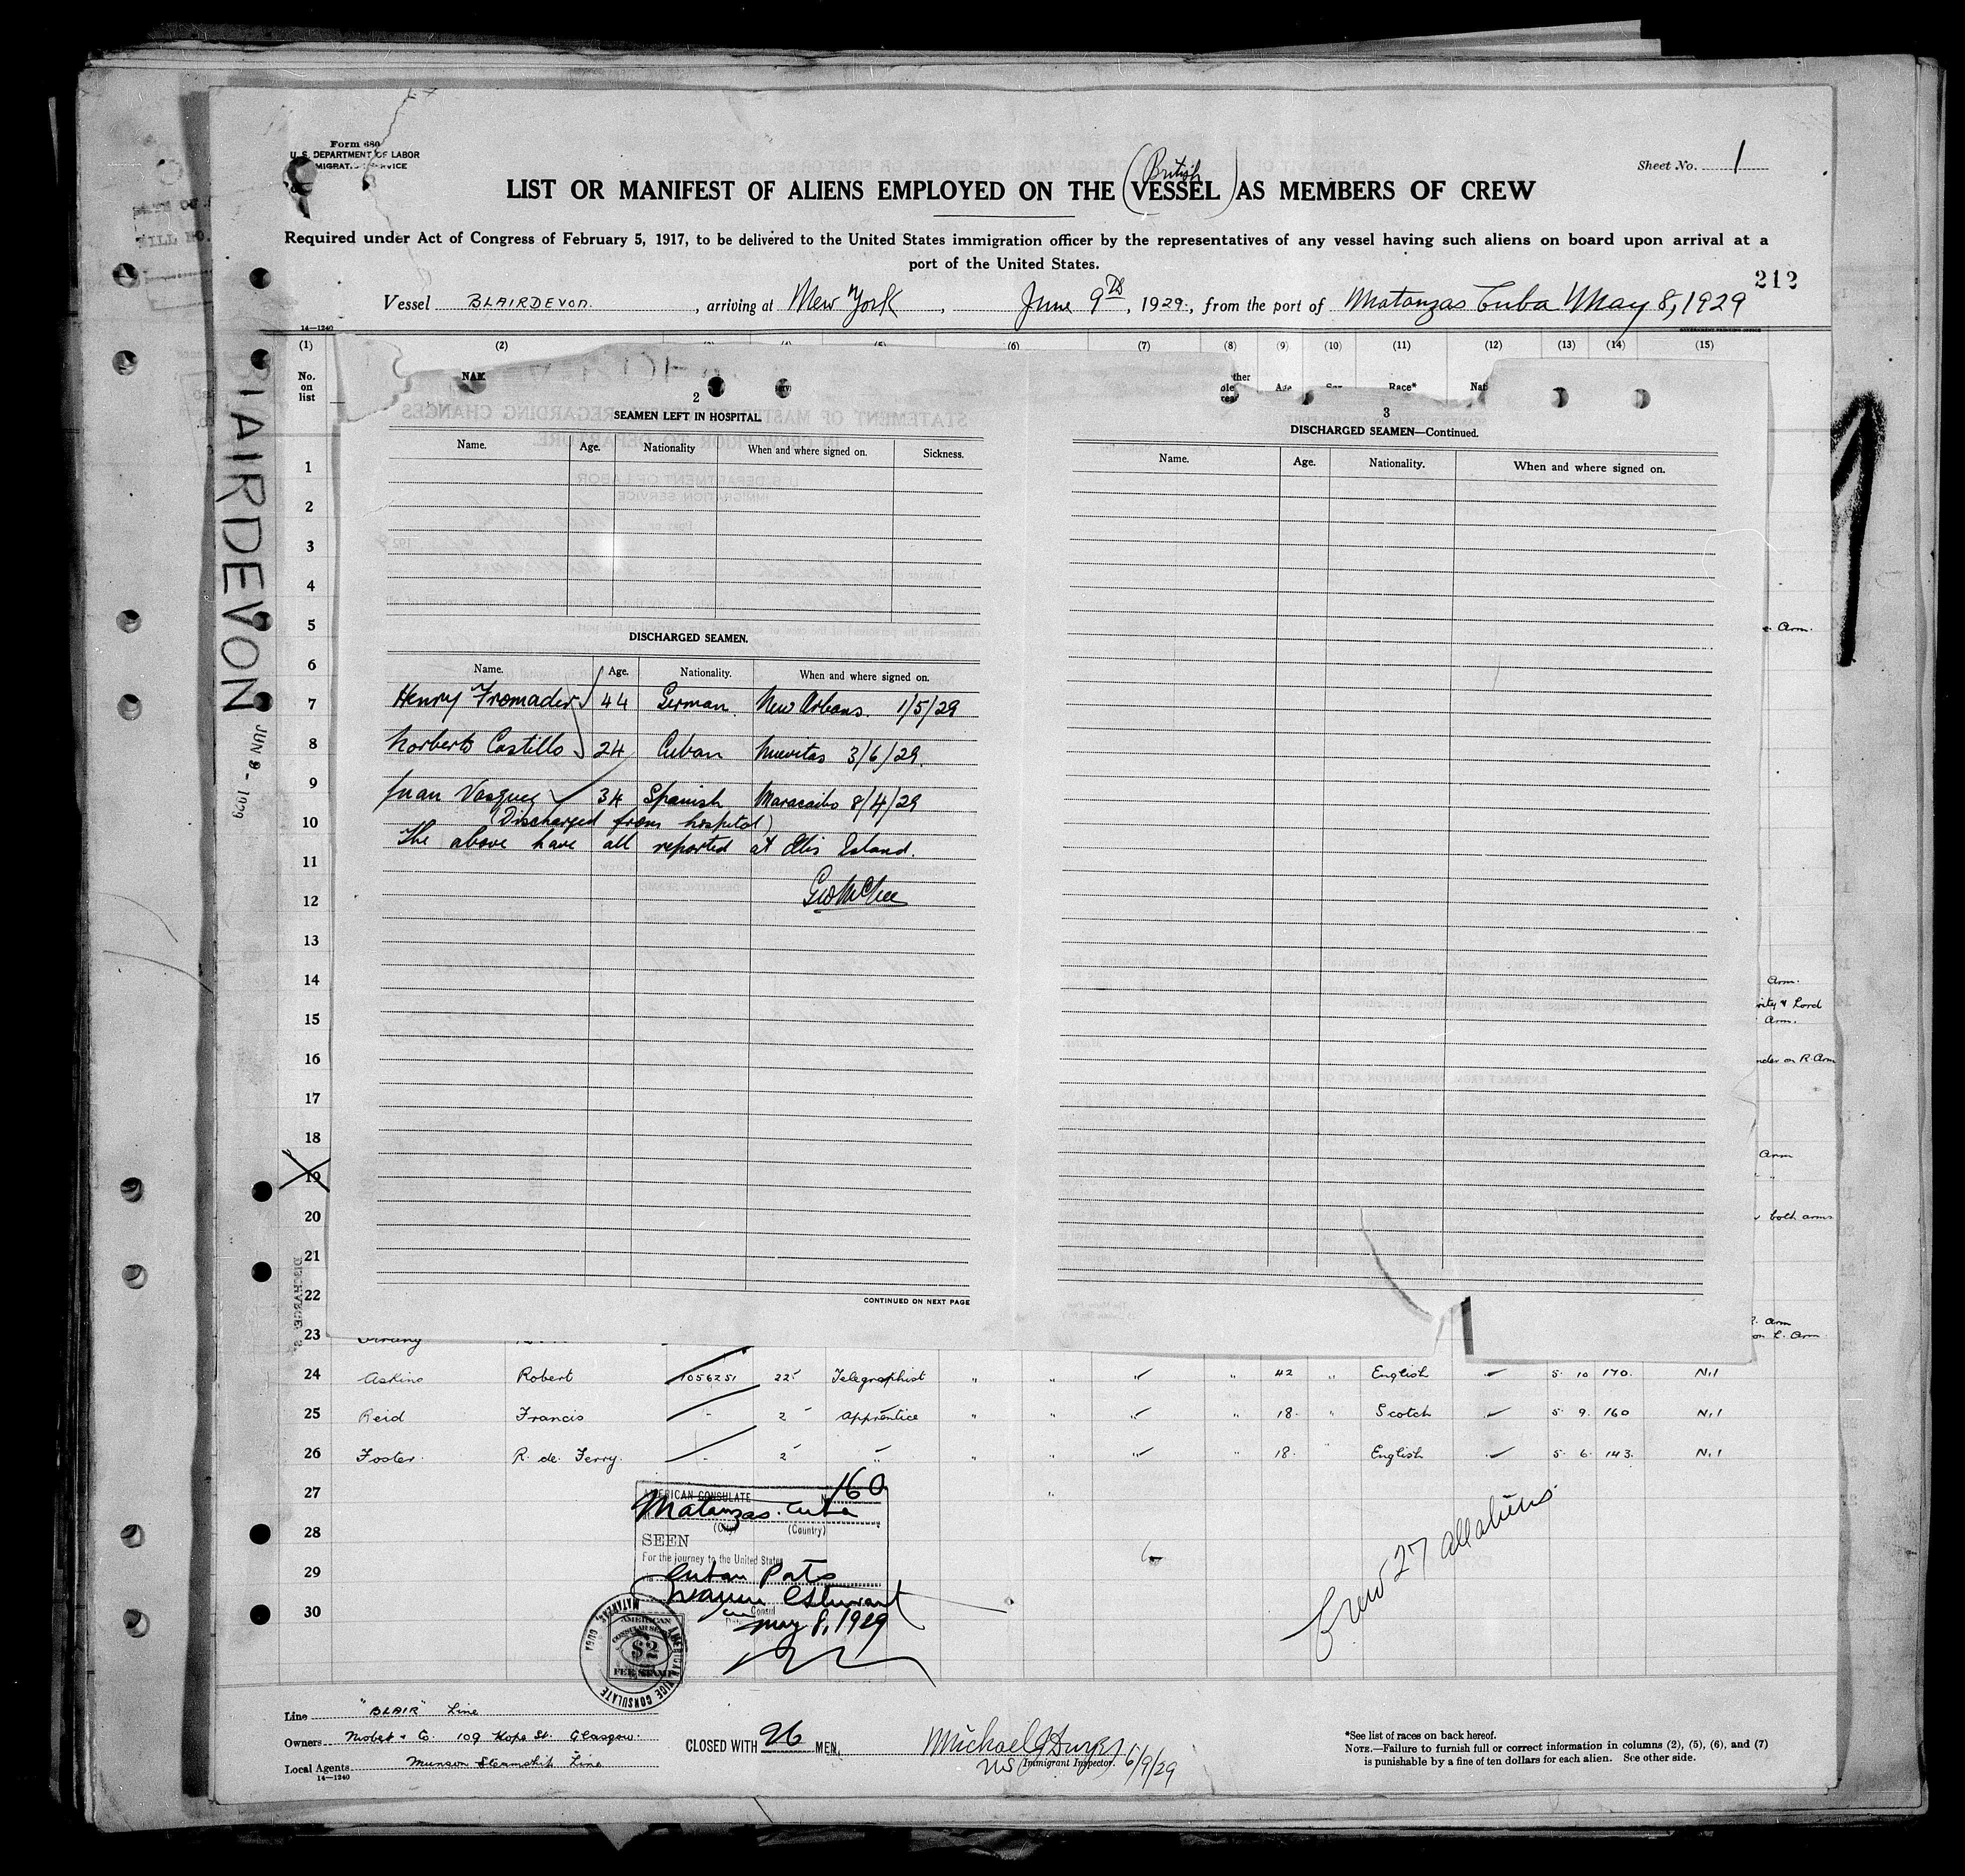 Form 680
U. S. DEPARTMENT OF LABOR
Sheet No. 1
(British)
LIST OR MANIFEST OF ALIENS EMPLOYED ON THE VESSEL AS MEMBERS OF CREW
Required under Act of Congress of February 5, 1917, to be delivered to the United States immigration officer by the representatives of any vessel having such aliens on board upon arrival at a
port of the United States.
212
Vessel BLAIRDEVON, arriving at New York, June 9th, 1929, from the port of Matanzas Cuba May 8, 1929
14—1240
(1) (2) (6) (7) (8) (9) (10) (11) (12) (13) (14) (15)
No.
on
list
Race*
BLAIRDEVON
JUN 9 - 1929
2
SEAMEN LEFT IN HOSPITAL
Name. Age. Nationality When and where signed on. Sickness.
DISCHARGED SEAMEN.
Name. Age. Nationality. When and where signed on.
Henry Fromader 44 German. New Orleans. 1/5/29
Norberto Castillo 24 Cuban Nuevitas 3/6/29.
Juan Vasquez 34 Spanish Maracaibo 8/4/29
(Discharged from hospital)
The above have all reported at Ellis Island.
Geo McGhee
CONTINUED ON NEXT PAGE
3
DISCHARGED SEAMEN—Continued.
Name. Age. Nationality. When and where signed on.
1
2
3
4
5 Arm.
6
7
8
9
10
11
12
13
14 Arm.
15 Lord
Arm.
16 on R. Arm
17
18 Arm
19
20 both arms
21
22
23 Arm
on L. Arm
24 Askins Robert 1056251 22 Telegraphist " " " " 42 " English 5 10 170. Nil
25 Reid Francis - 2 Apprentice " " " " 18. " Scotch 5 9. 160 Nil
26 Foster. R. de Ferry. - 2 " " " " " 18. " English 5 6 143. Nil
27
28
29
30
AMERICAN CONSULATE
No 160
Matanzas. Cuba
(City) (Country)
SEEN
For the journey to the United States
Cuban Ports
Consul
May 8, 1929
AMERICAN
CONSULAR SERVICE
$2
FEE STAMP
AMERICAN VICE CONSULATE
MATANZAS, CUBA
Crew 27 all aliens.
Line "BLAIR" Line
Owners Nisbet & Co. 109 Hope St. Glasgow.
Local Agents Munson Steamship Line
14—1240
CLOSED WITH 26 MEN,
US Immigrant Inspector. 6/9/29
*See list of races on back hereof.
NOTE.—Failure to furnish full or correct information in columns (2), (5), (6), and (7)
is punishable by a fine of ten dollars for each alien. See other side.